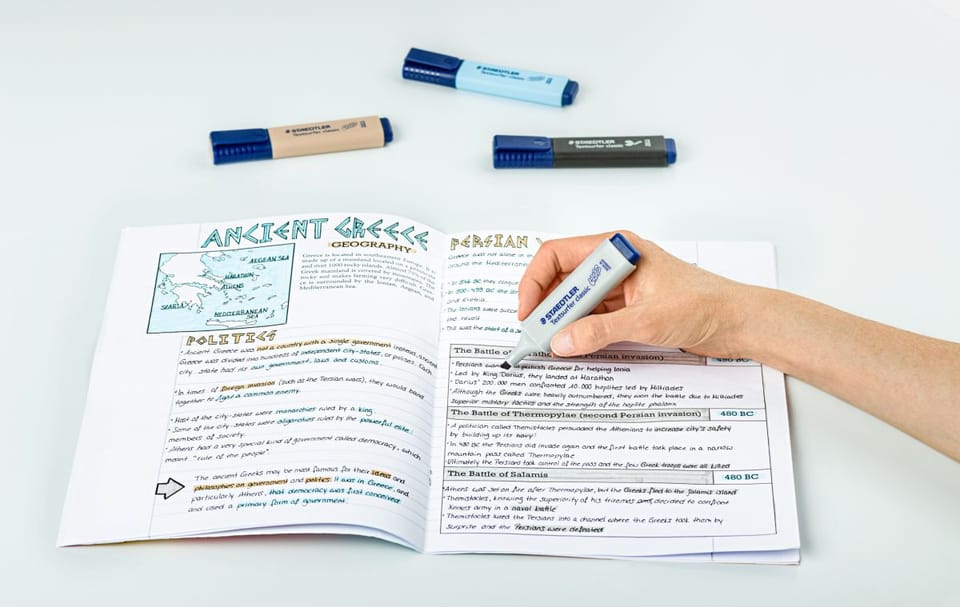 STAEDTLER
Textsurfer classic
STAEDTLER
Textsurfer classic
STAEDTLER
Textsurfer classic
ANCIENT GREECE
GEOGRAPHY
Greece is located in southeastern Europe. It is
made up of a mainland located on a
and over 1000 rocky islands. Almost
Greek mainland is covered by mountains
rocky soil makes farming very difficult. Greece
is surrounded by the Ionian, Aegean, and
Mediterranean Sea.
AEGEAN SEA
MARATHON
ATHENS
SPARTA
MEDITERRANEAN
SEA
POLITICS
Ancient Greece was not a country with a single government instead, ancient
Greece was divided into hundreds of independent city-states, or poleises. Each
city state had its own government, laws and customs.
In times of foreign invasion (such as the Persian wars), they would band
together to fight a common enemy.
Most of the city-states were monarchies ruled by a king.
Some of the city-states were oligarchies ruled by the powerful elite
members of society.
Athens had a very special kind of government called democracy, which
meant "rule of the people"
The ancient Greeks may be most famous for their ideas and
philosophies on government and politics. It was in Greece, and
particularly Athens, that democracy was first conceived
and used a primary form of government.
PERSIAN
Greece was not alone in
around the Mediterranean
and Eretria.
the revolt
This was the start of a
STAEDTLER
Textsurfer classic
The Battle of Persian invasion) 490 BC
Persians punish Greece for helping Ionia
Led by King Darius, they landed at Marathon
Darius' 200.000 men confronted 10.000 hoplites led by Miltiades
Although the Greeks were heavily outnumbered, they won the battle due to Miltiades
superior military tactics and the strength of the hoplite phalanx
The Battle of Thermopylae (second Persian invasion) 480 BC
A politician called Themistocles persuaded the Athenians to increase city's safety
by building up its navy!
In 480 BC the Persians did invade again and the first battle took place in a narrow
mountain pass called Thermopylae
Ultimately the Persians took control of the pass and the few Greek troops were all killed
The Battle of Salamis 480 BC
Athens was set on fire after Thermopylae, but the Greeks fled to the Salamis island
Themistocles, knowing the superiority of his triremes and, decided to confront
Xerxes army in a naval battle
Themistocles lured the Persians into a channel where the Greeks took them by
surprise and the Persians were defeated